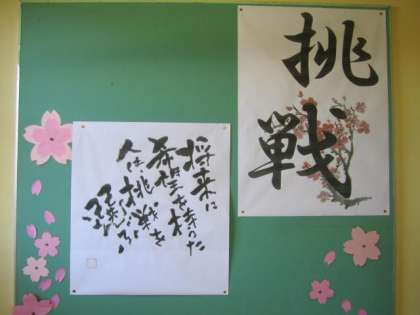 挑
戦
将来に
希望を持った
人は、挑戦を